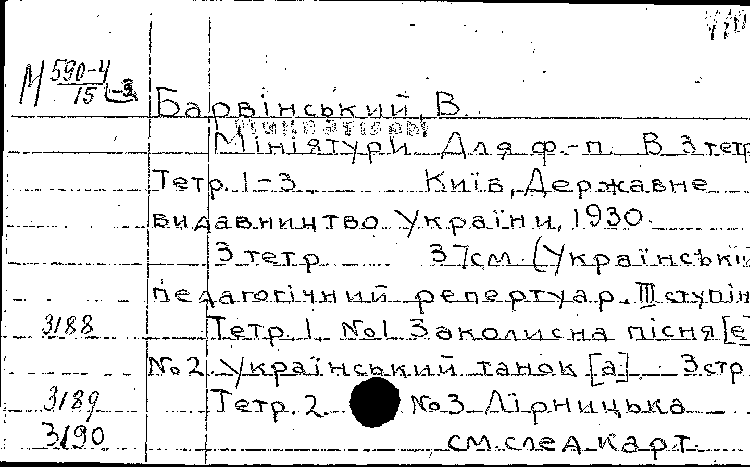 М 590-4
15 1-3
Барвінський, В.
Мініятюри
Мініятури Для ф.-п. В 3 тетр
Тетр. 1-3. Київ, Державне
видавництво України, 1930.
3 тетр. 37см. (Українськи
педагогічний репертуар. III ступін
3188 Тетр. 1. №1 Заколисна пісня [е]
№2 Український танок [а] 3стр
3189 Тетр. 2. №3 Лірницька
3190 см. след. карт.